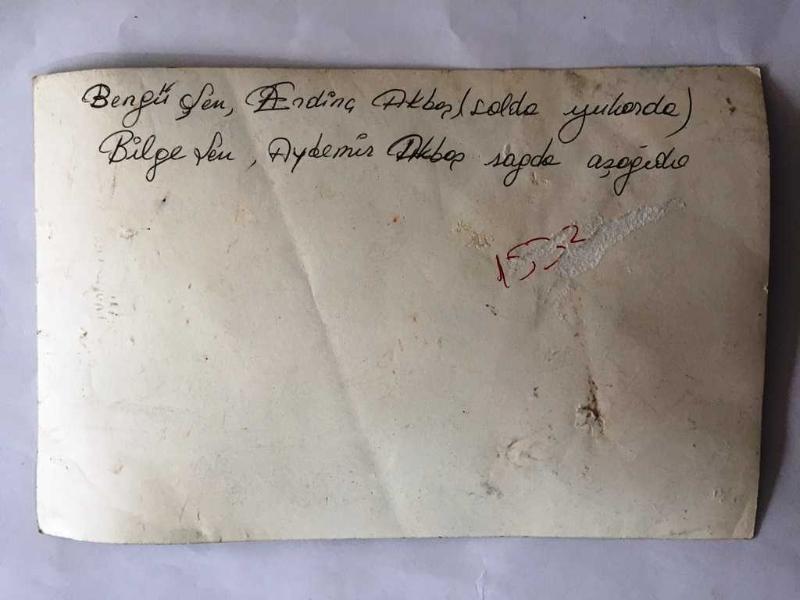 Bengü Şen, Erdinç Akbaş (solda yukarda)
Bilge Şen, Aydemir Akbaş sağda aşağıda